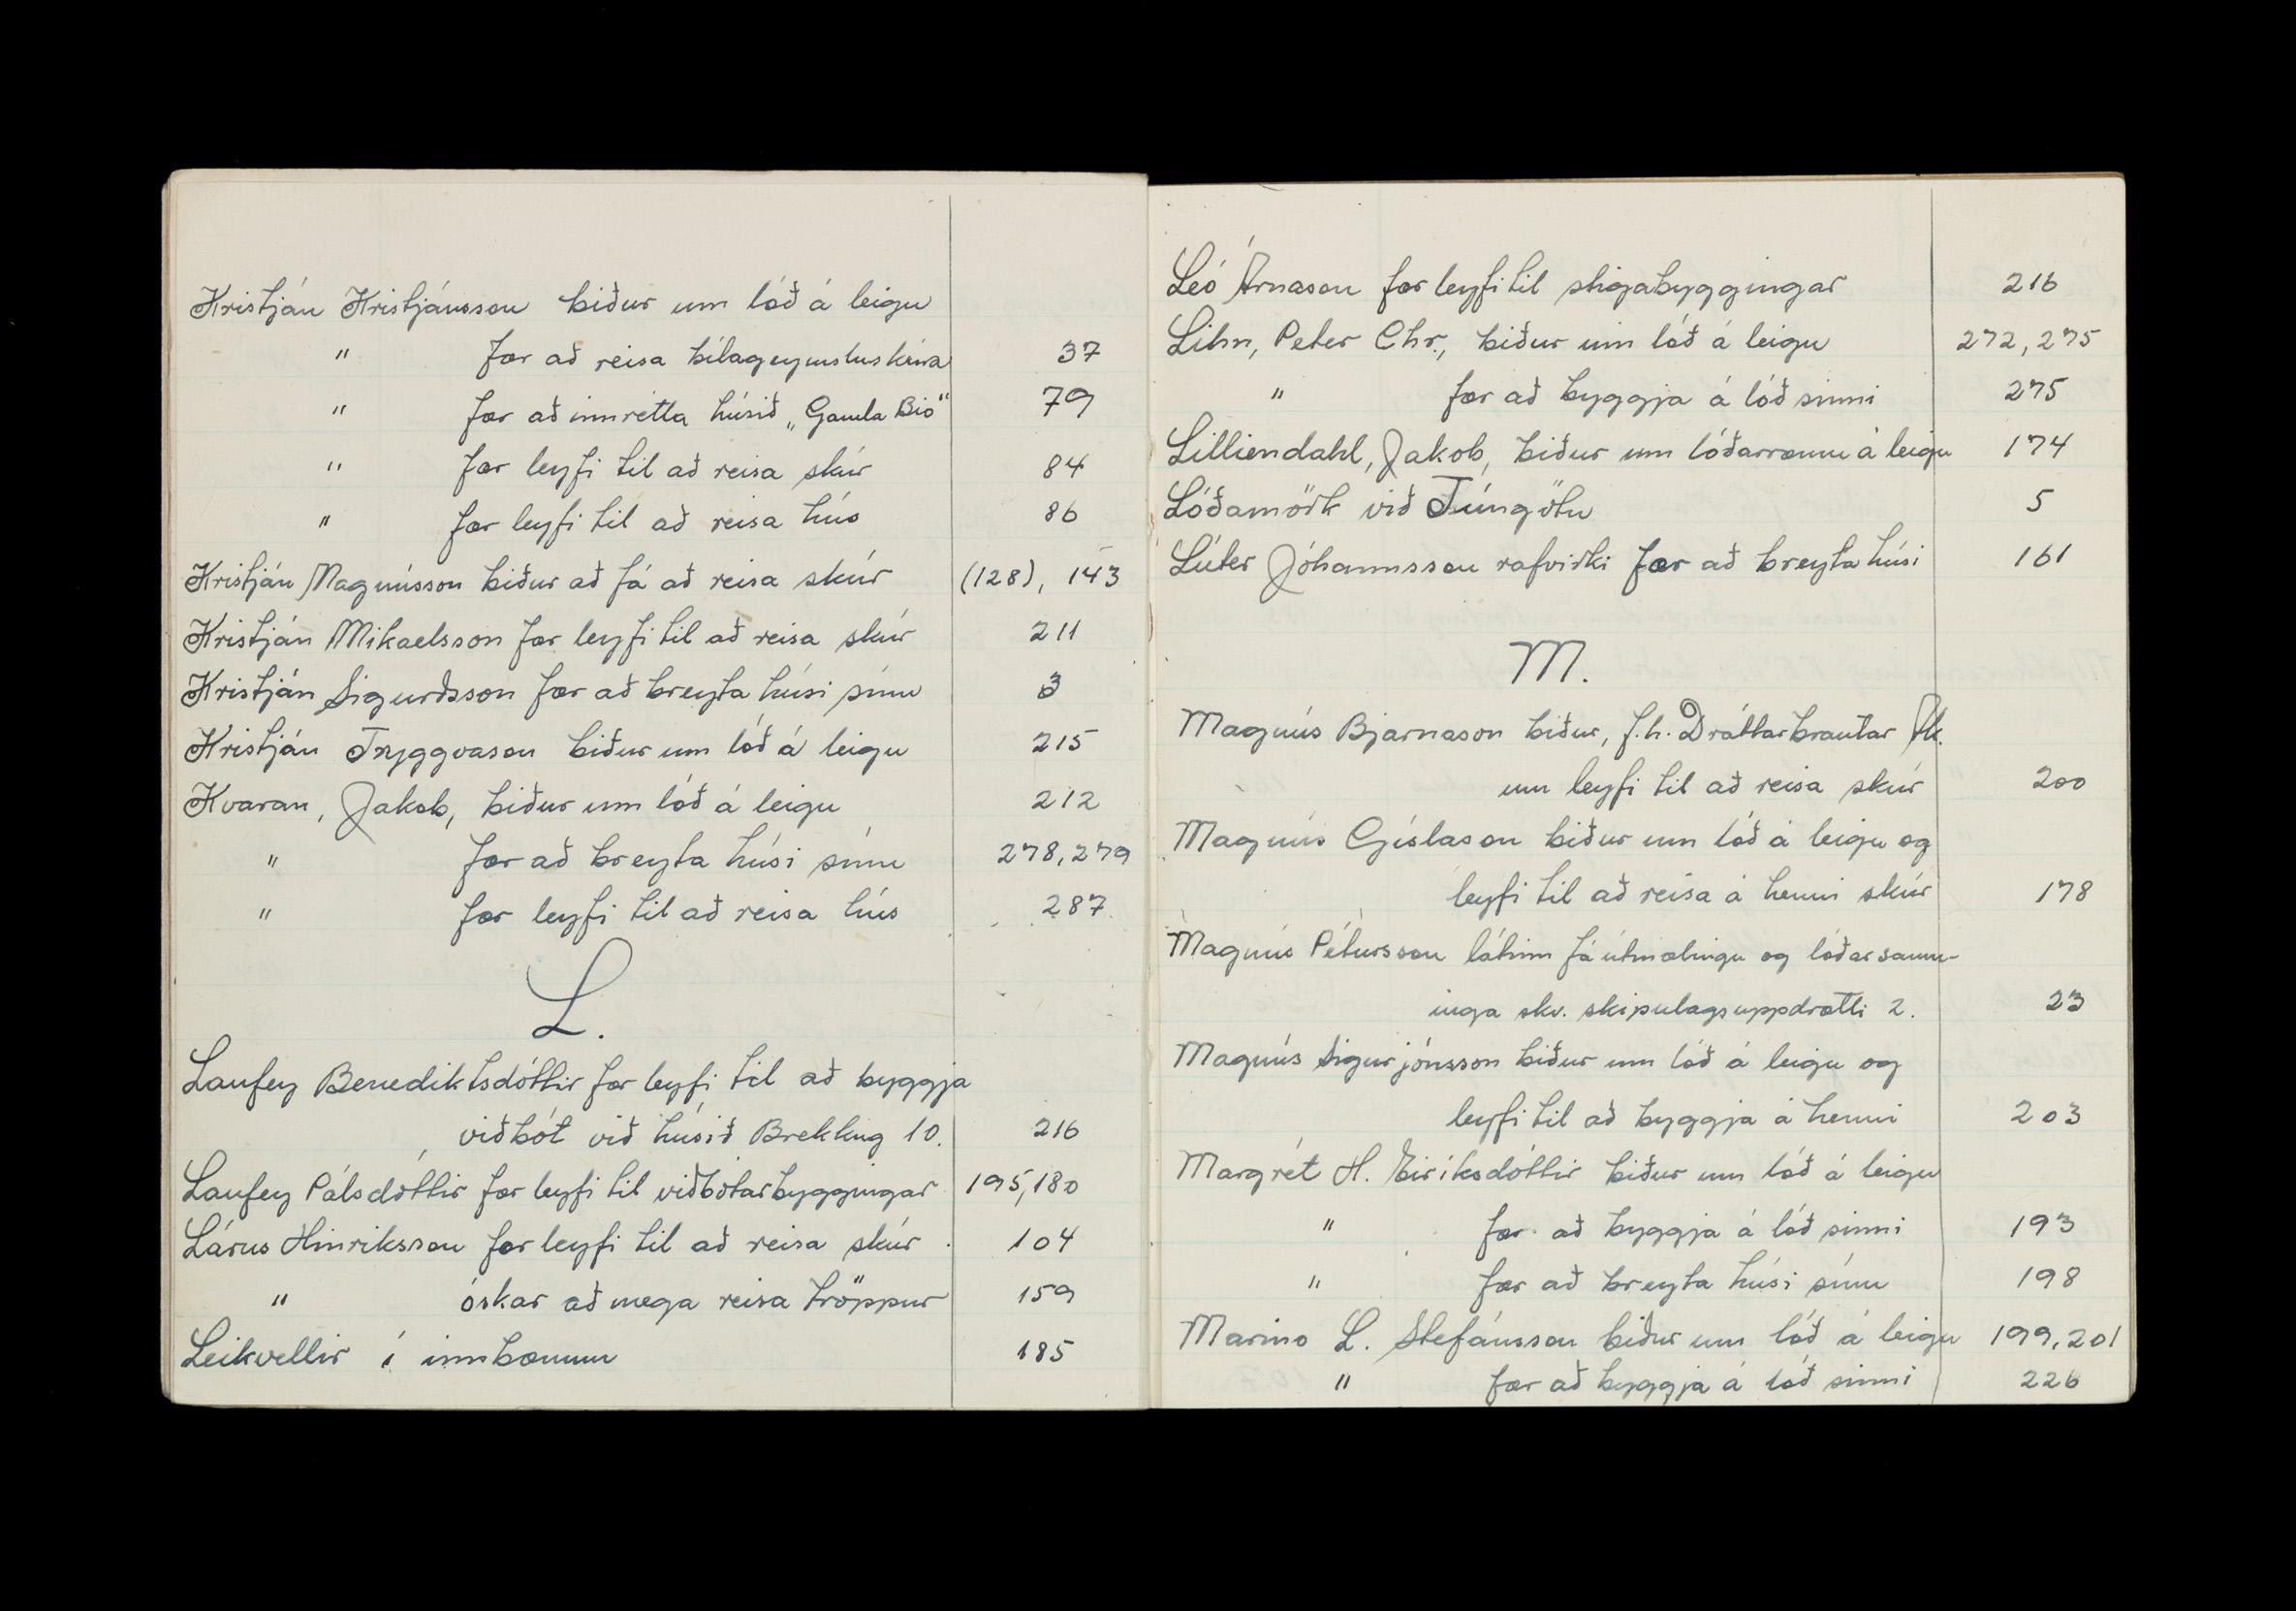 Kristján Kristjánsson biður um lóð á leigu
" fær að reisa bílageymsluskúra 37
" fær að innrétta húsið „Gamla Bió" 79
" fær leyfi til að reisa skúr 84
" fær leyfi til að reisa hús 86
Kristján Magnússon biður að fá að reisa skúr (128), 143
Kristján Mikaelsson fær leyfi til að reisa skúr 211
Kristján Sigurðsson fær að breyta húsi sínu 3
Kristján Tryggvason biður um lóð á leigu 215
Kvaran, Jakob, biður um lóð á leigu 212
" fær að breyta húsi sínu 278, 279
" fær leyfi til að reisa hús 287
L.
Laufey Benediktsdóttir fær leyfi til að byggja
viðbót við húsið Brekkug 10. 216
Laufey Pálsdóttir fær leyfi til viðbótarbyggingar 195, 180
Lárus Hinriksson fær leyfi til að reisa skúr 104
" óskar að mega reisa tröppur 159
Leikvellir í innbænum 185
Leó Árnason fær leyfi til stigabyggingar 216
Lihn, Peter Chr., biður um lóð á leigu 272, 275
" fær að byggja á lóð sinni 275
Lilliendahl, Jakob, biður um lóðarræmu á leigu 174
Lóðamörk við Túngötu 5
Lúter Jóhannsson rafvirki fær að breyta húsi 161
M.
Magnús Bjarnason biður, f.h. Dráttarbrautar Ak.
um leyfi til að reisa skúr 200
Magnús Gíslason biður um lóð á leigu og
leyfi til að reisa á henni skúr 178
Magnús Pétursson látinn fá útmælingu og lóðarsamn-
inga skv. skipulagsuppdrætti 2. 23
Magnús Sigurjónsson biður um lóð á leigu og
leyfi til að byggja á henni 203
Margrét H. Eiríksdóttir biður um lóð á leigu
" fær að byggja á lóð sinni 193
" fær að breyta húsi sínu 198
Marino L. Stefánsson biður um lóð á leigu 199, 201
" fær að byggja á lóð sinni 226